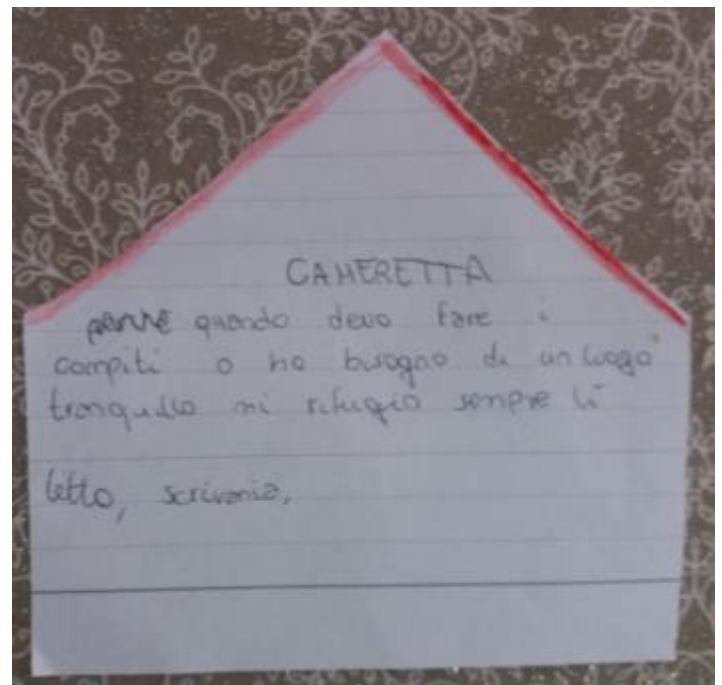 CAMERETTA
perché quando devo fare i
compiti o ho bisogno di un luogo
tranquillo mi rifugio sempre lì
letto, scrivania,